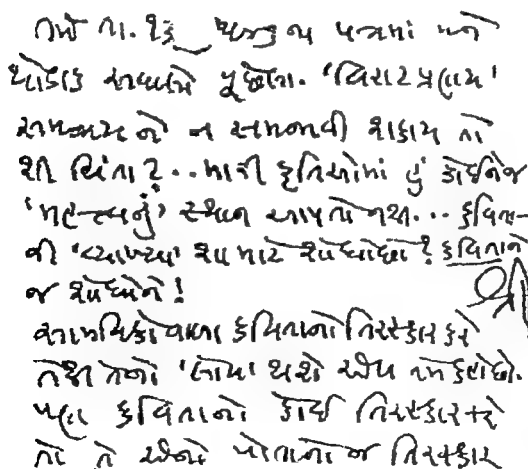 તમે તા. ૨૬ જ પત્રમાં મને
થોડાક સવાલો પૂછેલા. 'વિરાટ પ્રલય'
સમજાય ને ન સમજાવી શકાય તો
શી ચિંતા?.. મારી કૃતિઓમાં હું કોઈનેજ
'મહત્ત્વનું' સ્થાન આપતો નથી... કવિતા-
ની 'વ્યાખ્યા' શા માટે શોધો છો? કવિતાને
જ શોધોને!
સામયિકોવાળા કવિતાનો તિરસ્કાર કરે
તેથી તેનો 'લોપ' થશે એમ તમે કહો છો.
પણ કવિતાનો કોઈ તિરસ્કાર કરે
તો તે એનો પોતાનો જ તિરસ્કાર